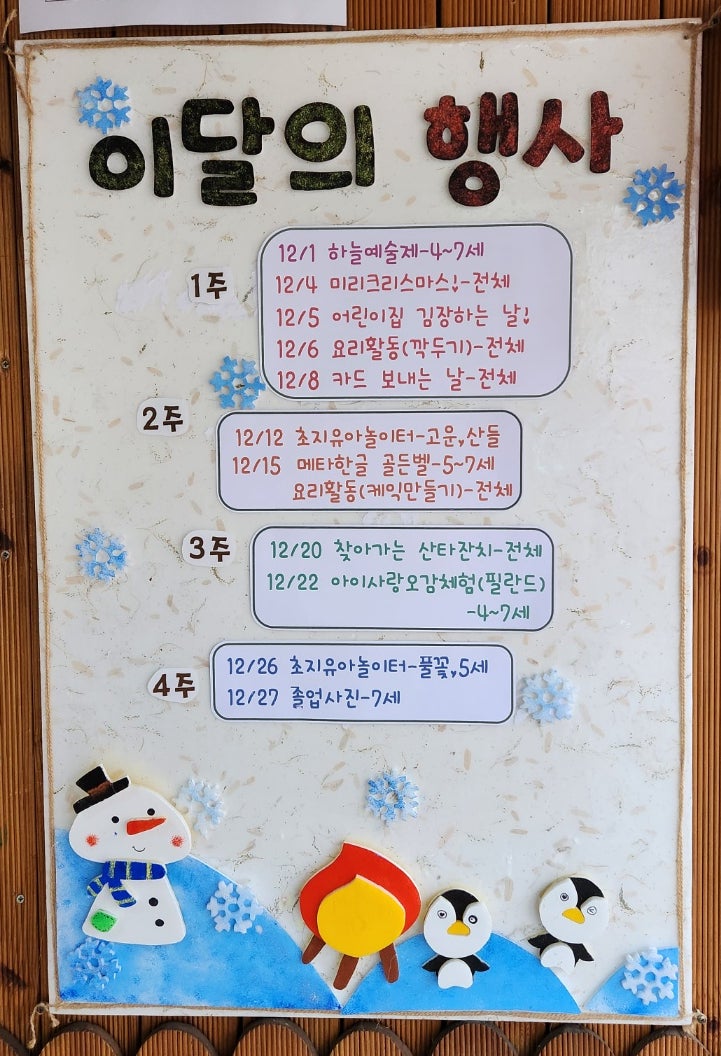 이달의 행사
1주
12/1 하늘예술제-4~7세
12/4 미리크리스마스!-전체
12/5 어린이집 김장하는 날!
12/6 요리활동(깍두기)-전체
12/8 카드 보내는 날-전체
2주
12/12 초지유아놀이터-고운,산들
12/15 메타한글 골든벨-5~7세
요리활동(케익만들기)-전체
3주
12/20 찾아가는 산타잔치-전체
12/22 아이사랑오감체험(필란드)
-4~7세
4주
12/26 초지유아놀이터-풀꽃,5세
12/27 졸업사진-7세